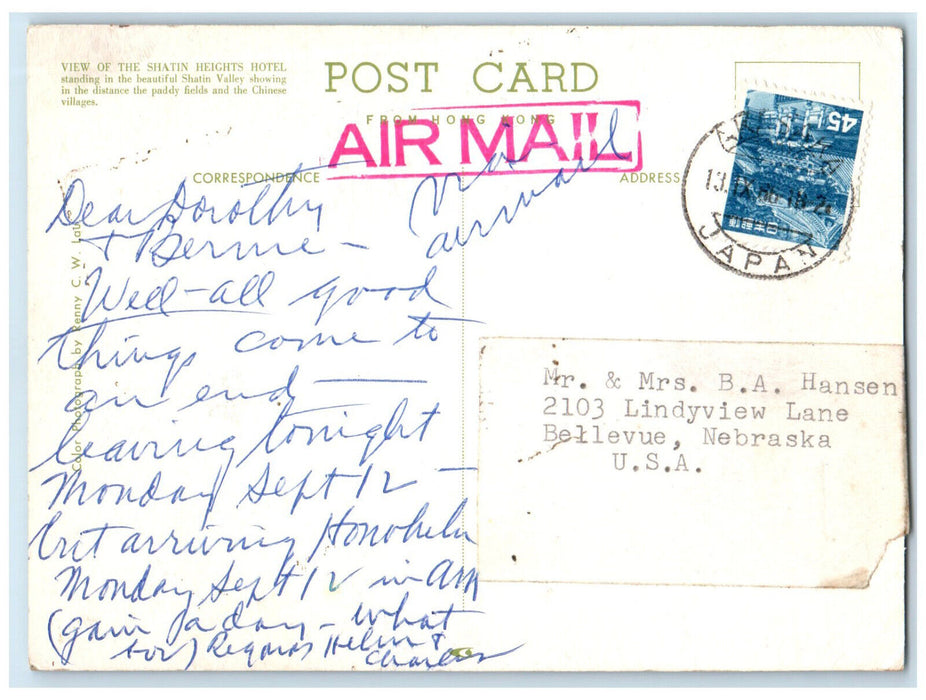 VIEW OF THE SHATIN HEIGHTS HOTEL
standing in the beautiful Shatin Valley showing
in the distance the paddy fields and the Chinese
villages.
POST CARD
FROM HONG KONG
AIR MAIL
CORRESPONDENCE
ADDRESS
via
airmail
Dear Dorothy
+ Bernie –
Well – all good
things come to
an end —
leaving tonight
Monday Sept 12 –
but arriving Honolulu
Monday Sept 12 in AM
(gain a day – what
for) Regards Helen &
Charles
Color Photograph by Renny C. W.
45
13.IX
JAPAN
Mr. & Mrs. B.A. Hansen
2103 Lindyview Lane
Bellevue, Nebraska
U.S.A.